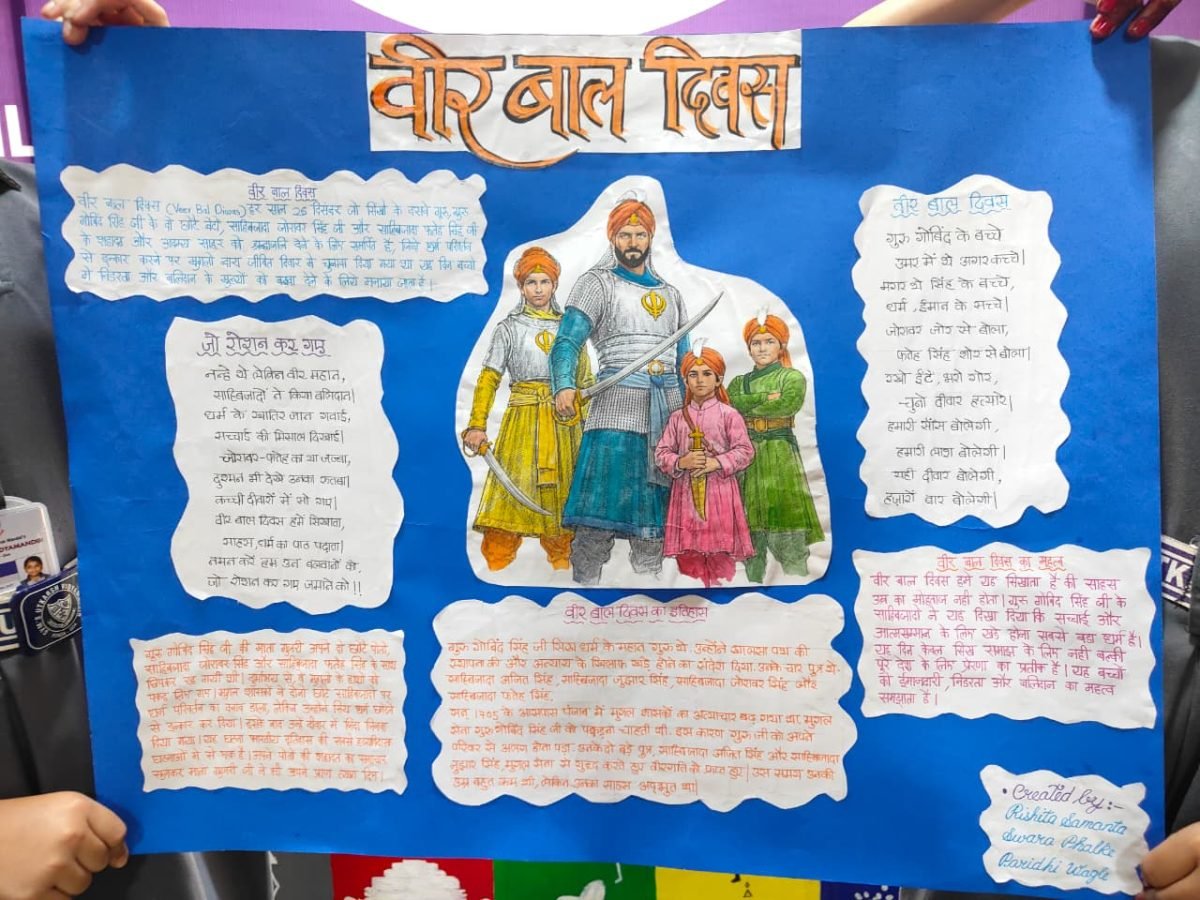 वीर बाल दिवस
वीर बाल दिवस
वीर बाल दिवस (Veer Bal Diwas) हर साल 26 दिसंबर को सिखों के दसवें गुरु, गुरु
गोबिंद सिंह जी के दो छोटे बेटों, साहिबजादा जोरावर सिंह जी और साहिबजादा फतेह सिंह जी
के शहादत और अदम्य साहस को श्रद्धांजलि देने के लिए समर्पित है, जिन्हें धर्म परिवर्तन
से इन्कार करने पर मुगलों द्वारा जीवित दीवार में चुनवा दिया गया था यह दिन बच्चों
में निडरता और बलिदान के मूल्यों को बढ़ावा देने के लिये मनाया जाता है।
जो रोशन कर गए
नन्हे थे लेकिन वीर महान,
साहिबजादों ने किया बलिदान।
धर्म के खातिर जान गवाई,
सच्चाई की मिसाल दिखाई।
जोरावर-फतेह का था जज्बा,
दुश्मन भी देखे उनका रुतबा।
कच्ची दीवारों में सो गए।
वीर बाल दिवस हमें सिखाता,
साहस, धर्म का पाठ पढ़ाता।
नमन करें हम उन बलवानों को,
जो रोशन कर गए जमाने को!!
गुरु गोबिंद सिंह जी की माता गुजरी अपने दो छोटे पोतों,
साहिबजादा जोरावर सिंह और साहिबजादा फतेह सिंह के साथ
बिछड़ गयी थी। दुर्भाग्य से, वे मुगलों के हाथों
पकड़ लिए गए। मुगल शासकों ने दोनों छोटे साहिबजादों पर
धर्म परिवर्तन का दबाव डाला, लेकिन उन्होंने सिख धर्म छोड़ने
से इन्कार कर दिया। इसके बाद उन्हें दीवार में जिंदा चिनवा
दिया गया। यह घटना भारतीय इतिहास की सबसे हृदयविदारक
घटनाओं में से एक है। अपने पोतों की शहादत का समाचार
सुनकर माता गुजरी जी ने भी अपने प्राण त्याग दिए।
वीर बाल दिवस का इतिहास
गुरु गोबिंद सिंह जी सिख धर्म के महान गुरु थे। उन्होंने खालसा पंथ की
स्थापना की और अन्याय के खिलाफ खड़े होने का संदेश दिया। उनके चार पुत्र थे-
साहिबजादा अजित सिंह, साहिबजादा जुझार सिंह, साहिबजादा जोरावर सिंह और
साहिबजादा फतेह सिंह,
सन् 1705 के आसपास पंजाब में मुगल शासकों का अत्याचार बढ़ गया था, मुगल
सेना गुरु गोबिंद सिंह जी को पकड़ना चाहती थी. इस कारण गुरु जी को अपने
परिवार से अलग होना पड़ा. उनके दो बड़े पुत्र, साहिबजादा अजित सिंह और साहिबजादा
जुझार सिंह, मुगल सेना से युद्ध करते हुए वीरगति को प्राप्त हुए। उस समय उनकी
उम्र बहुत कम थी, लेकिन उनका साहस अद्भुत था।
वीर बाल दिवस
गुरु गोबिंद के बच्चे
उमर में थे अगर कच्चे।
मगर थे सिंह के बच्चे,
धर्म, ईमान के सच्चे।
जोरावर जोर से बोला,
फतेह सिंह शोर से बोला।
रखो ईंटें, भरो गारे,
चुनो दीवार हत्यारे।
हमारी साँस बोलेगी,
हमारी लाश बोलेगी।
यही दीवार बोलेगी,
हज़ारों बार बोलेगी।
वीर बाल दिवस का महत्व
वीर बाल दिवस हमें यह सिखाता है की साहस
उम्र का मोहताज नही होता। गुरु गोबिंद सिंह जी के
साहिबजादों ने यह दिखा दिया कि सच्चाई और
आत्मसम्मान के लिए खड़े होना सबसे बड़ा धर्म है।
यह दिन केवल सिख समाज के लिए नही बल्की
पूरे देश के लिए प्रेरणा का प्रतीक है। यह बच्चों
को ईमानदारी, निडरता और बलिदान का महत्व
समझाता है।
• Created by:-
Rishita Samanta
Swara Phalke
Paridhi Wagle